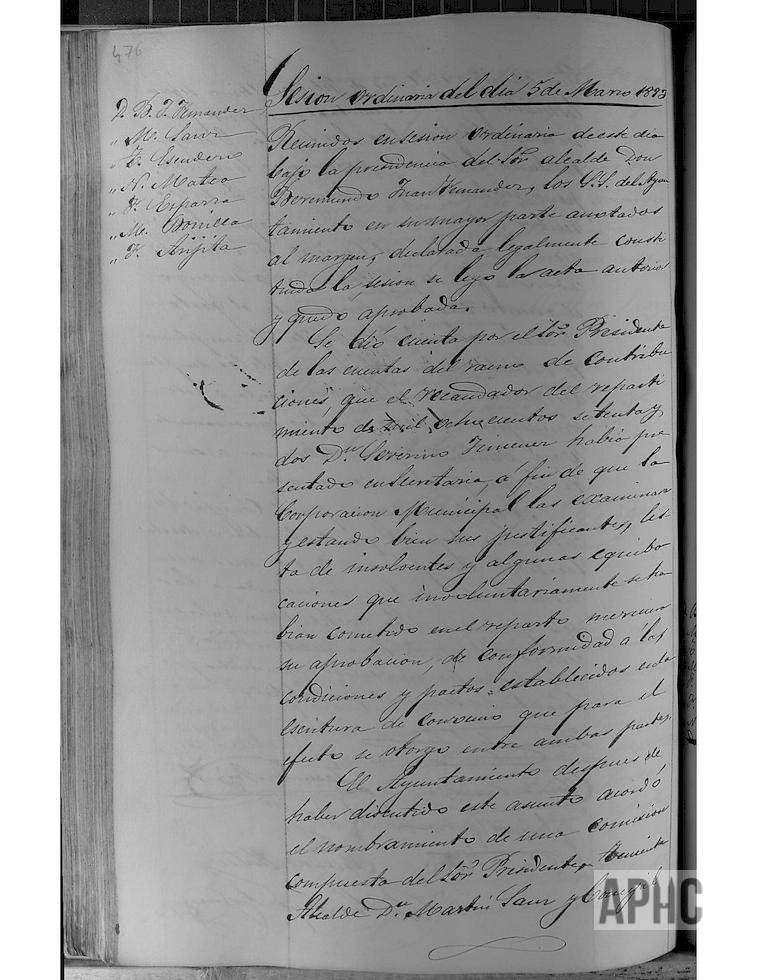 476
Sesion ordinaria del dia 5 de Marzo 1893
D. B. J. Fernander
" M. Sanz
" F. Escudero
" N. Mateo
" F. Esparza
" M. Bonilla
" F.
Reunidos en sesion ordinaria de este dia
bajo la presidencia del Sor. alcalde Don
Beremundo Juan Fernander, los S.S. del Ayun
tamiento en su mayor parte anotados
al margen, declarada legalmente consti
tuida la sesion se leyo la acta anterior
y quedo aprobada.
Se dió cuenta por el Sor. Presidente
de las cuentas del ramo de Contribu
ciones, que el recaudador del reparti
miento de mil ochocientos setenta y
dos Dn. Severino Jimener habia pre
sentado en Secretaria, á fin de que la
Corporacion Municipal las examinara
y estando bien sus justificantes, lis-
ta de insolventes y algunas equibo
caciones que involuntariamente se ha
bian cometido en el reparto mericieran
su aprobacion, de conformidad á las
condiciones y pactos establecidos en la
escritura de convenio que para el
efecto se otorgo entre ambas partes.
El Ayuntamiento despues de
haber discutido este asunto acordó
el nombramiento de una comision
compuesta del Sor. Presidente, teniente
Alcalde Dn. Martin Sanz y
APHC